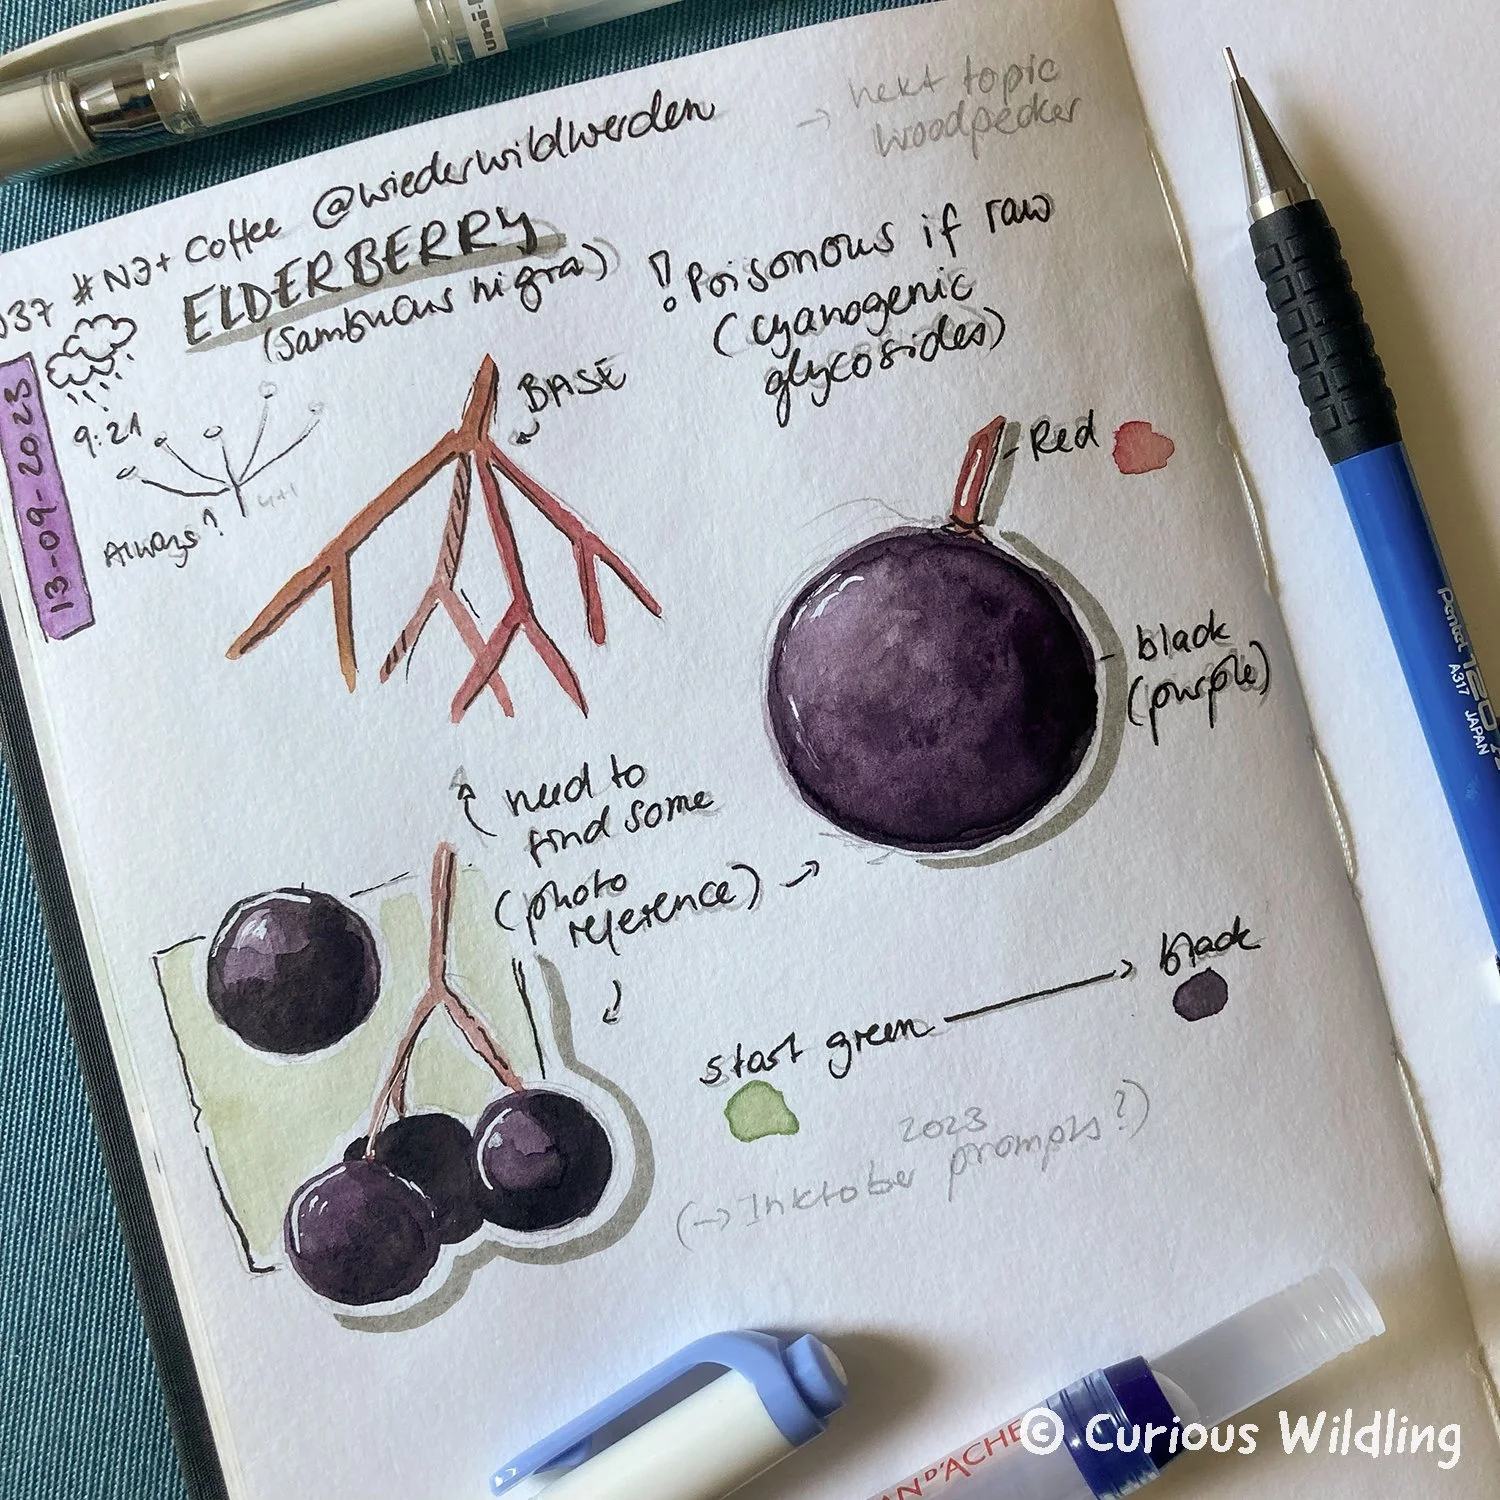 → next topic
woodpecker
037 #NJ+Coffee @wiederwildwerden
ELDERBERRY
(Sambucus nigra)
! Poisonous if raw
(cyanogenic
glycosides)
13-09-2023
9:21
4+1
Always?
BASE
- Red
- black
(purple)
need to
find some
(photo
reference) →
start green → black
2023
(→ Inktober prompts?)
uni
Pentel 120
A317 JAPAN
AN D'ACHE
© Curious Wildling